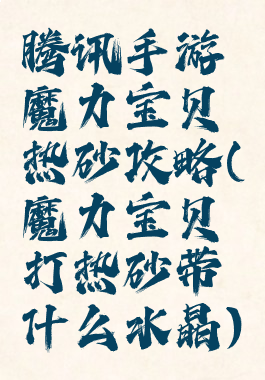 腾讯手游
魔力宝贝
热砂攻略(
魔力宝贝
打热砂带
什么水晶)